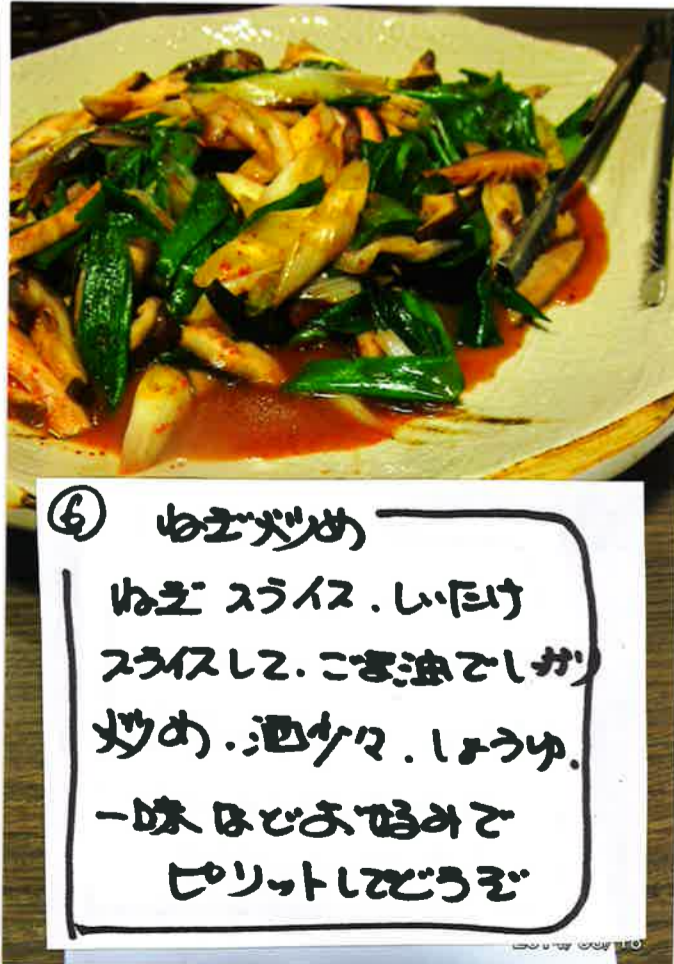 ⑥ ねぎ炒め
ねぎ スライス、しいたけ
スライスして、ごま油でしっかり
炒め、酒少々、しょうゆ、
一味などお好みで
ピリットしてどうぞ